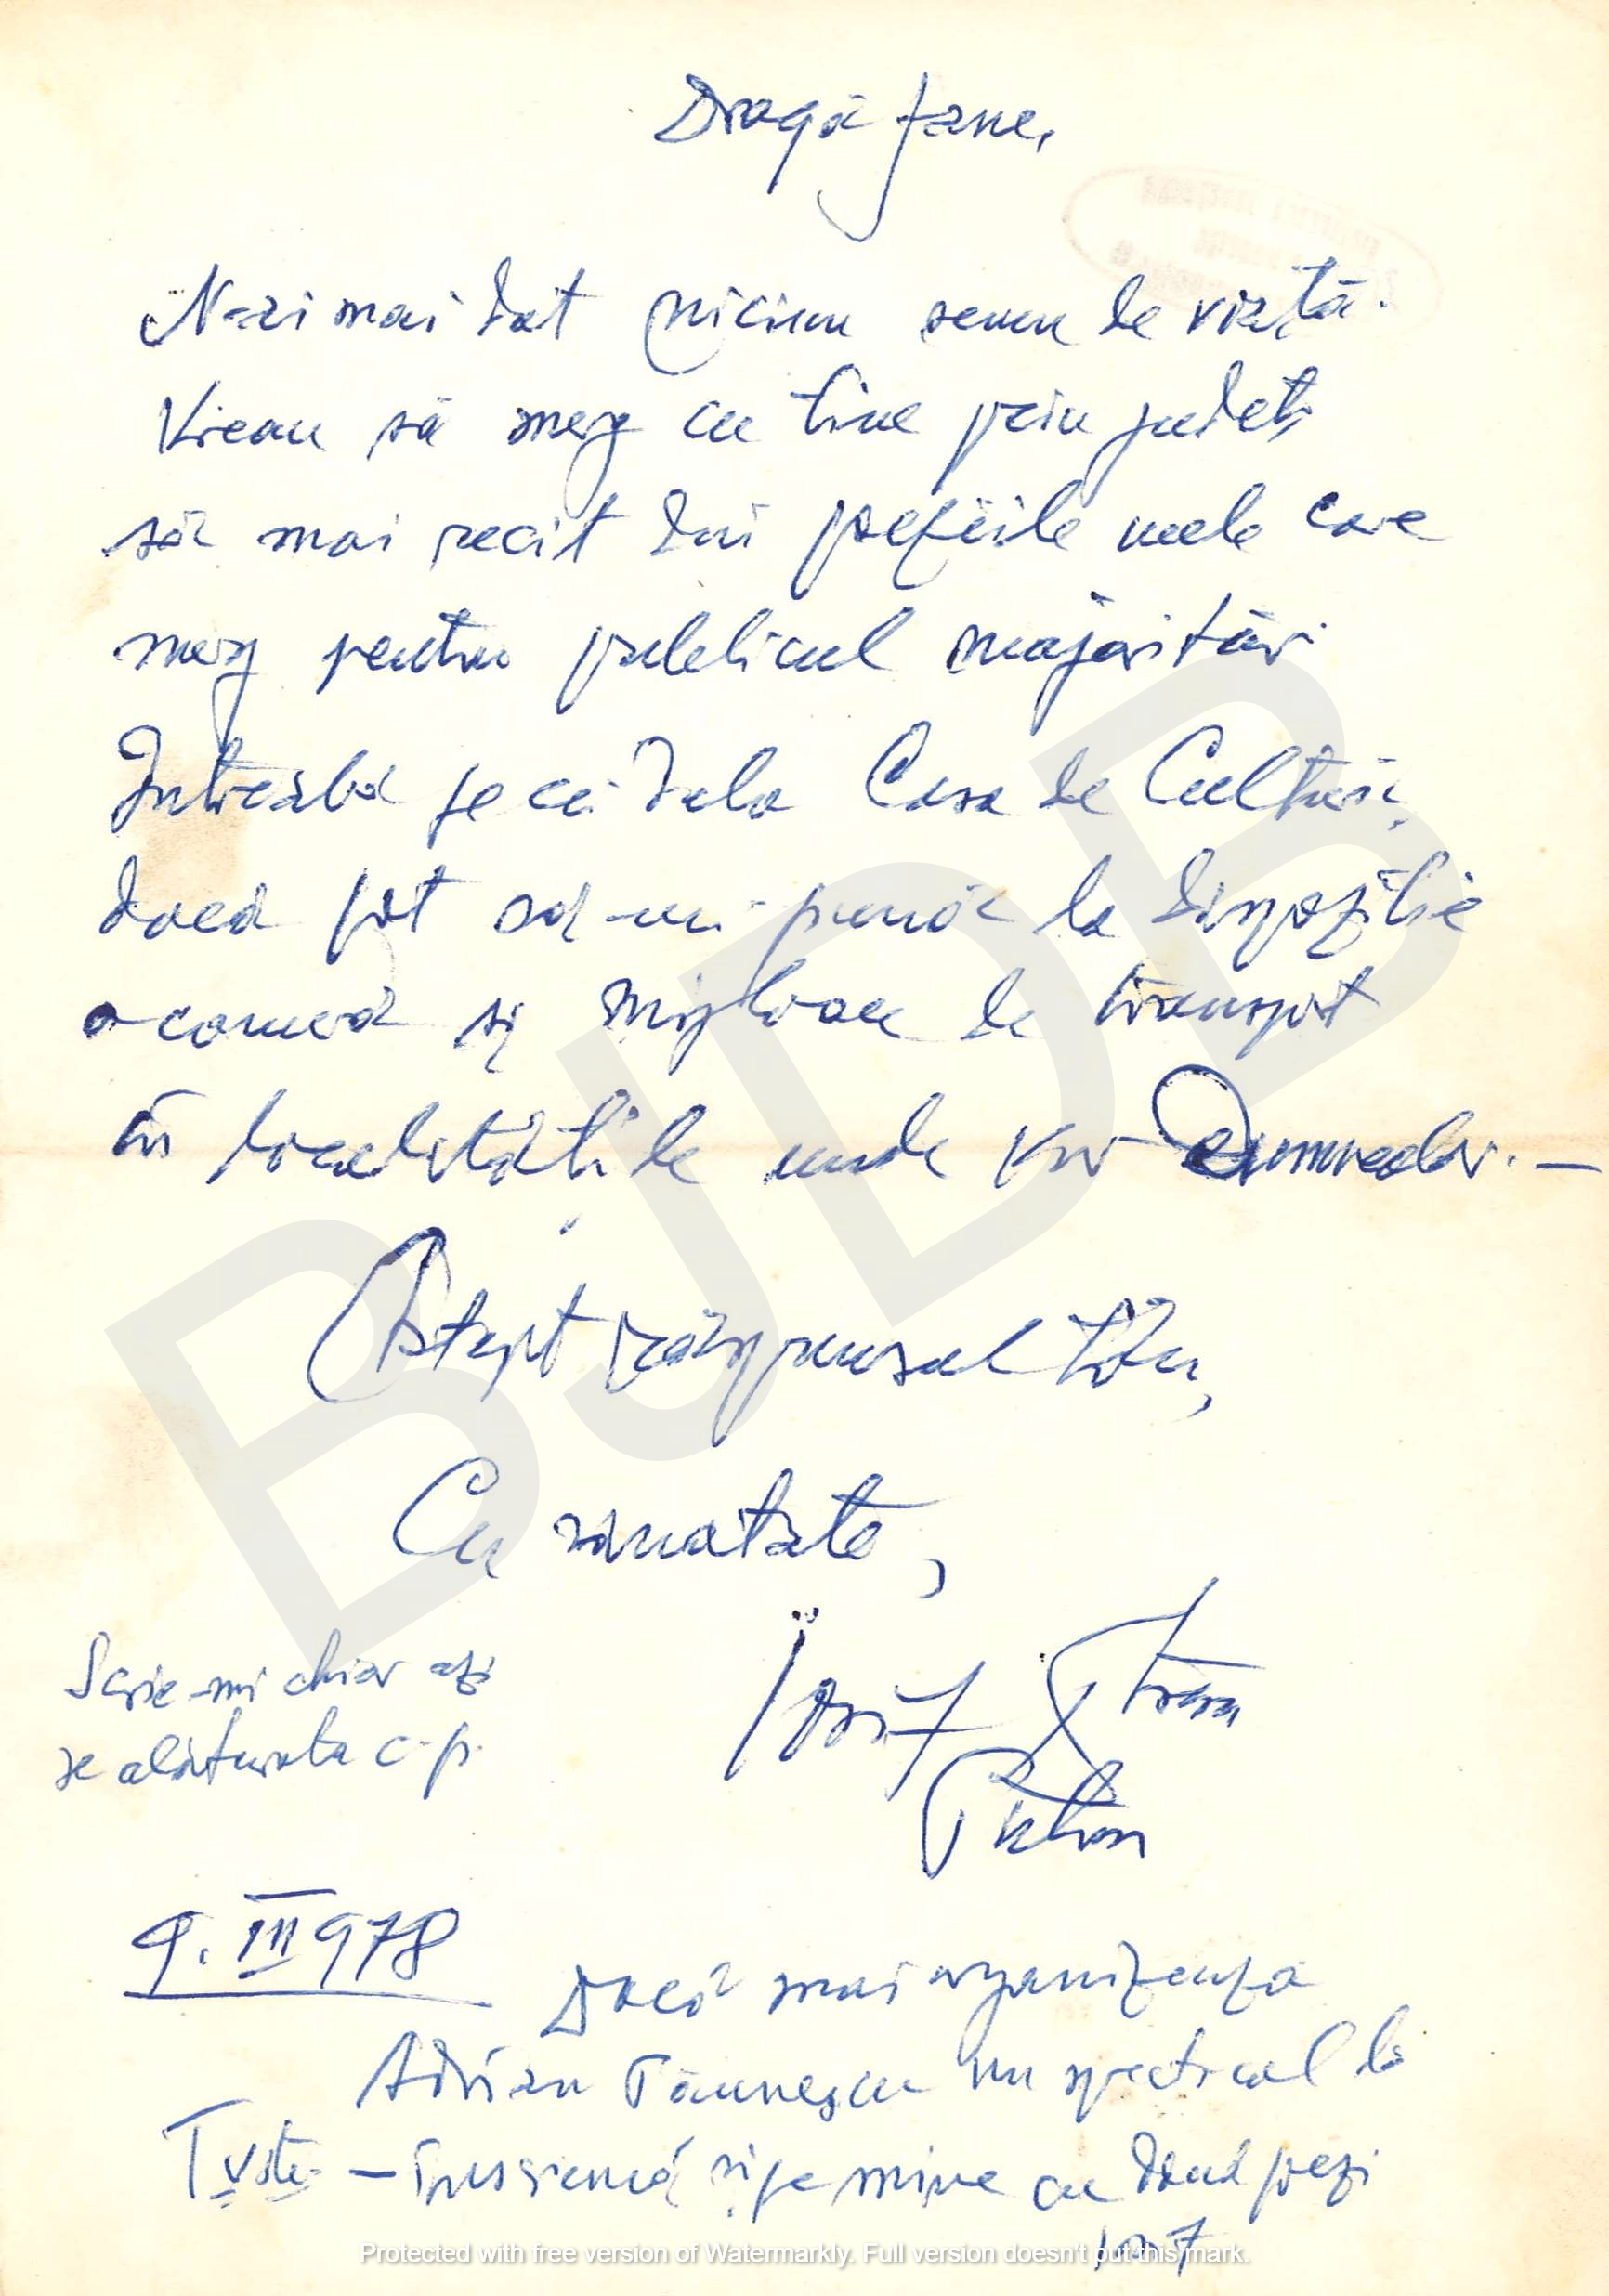 Dragă Jane,
N-ai mai dat niciun semn de viață.
Vreau să merg cu tine prin județ
să mai recit din poeziile mele care
merg pentru publicul majoritar
Întreabă pe cei dela Casa de Cultură,
dacă pot să-mi pună la dispoziție
o cameră și mijloace de transport
în localitățile unde vor
Aștept răspunsul tău,
Cu sănătate,
Iosif
Scrie-mi chiar azi
pe alăturata c.p.
9. III 978
Dacă mai organizează
Adrian Păunescu un spectacol la
și pe mine cu două poezii
Iosif
BJDB
Protected with free version of Watermarkly. Full version doesn't put this mark.